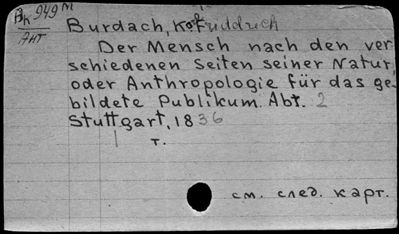 Вк 949 м
Ант
Burdach,
Der Mensch nach den ver-
schiedenen Seiten seiner Natur,
oder Anthropologie für das ge-
bildete Publikum. Abt. 2
Stuttgart, 1836
1 т.
см. след. карт.